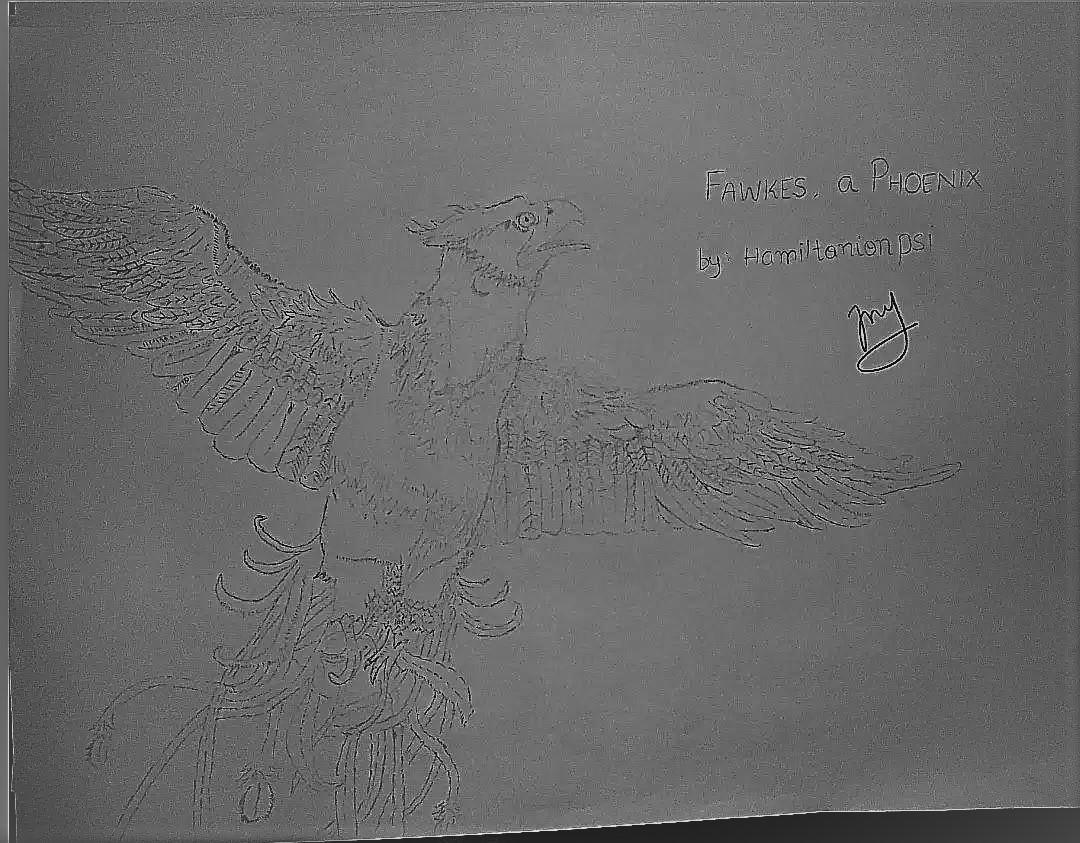 FAWKES, a PHOENIX
by: Hamiltonian psi
my